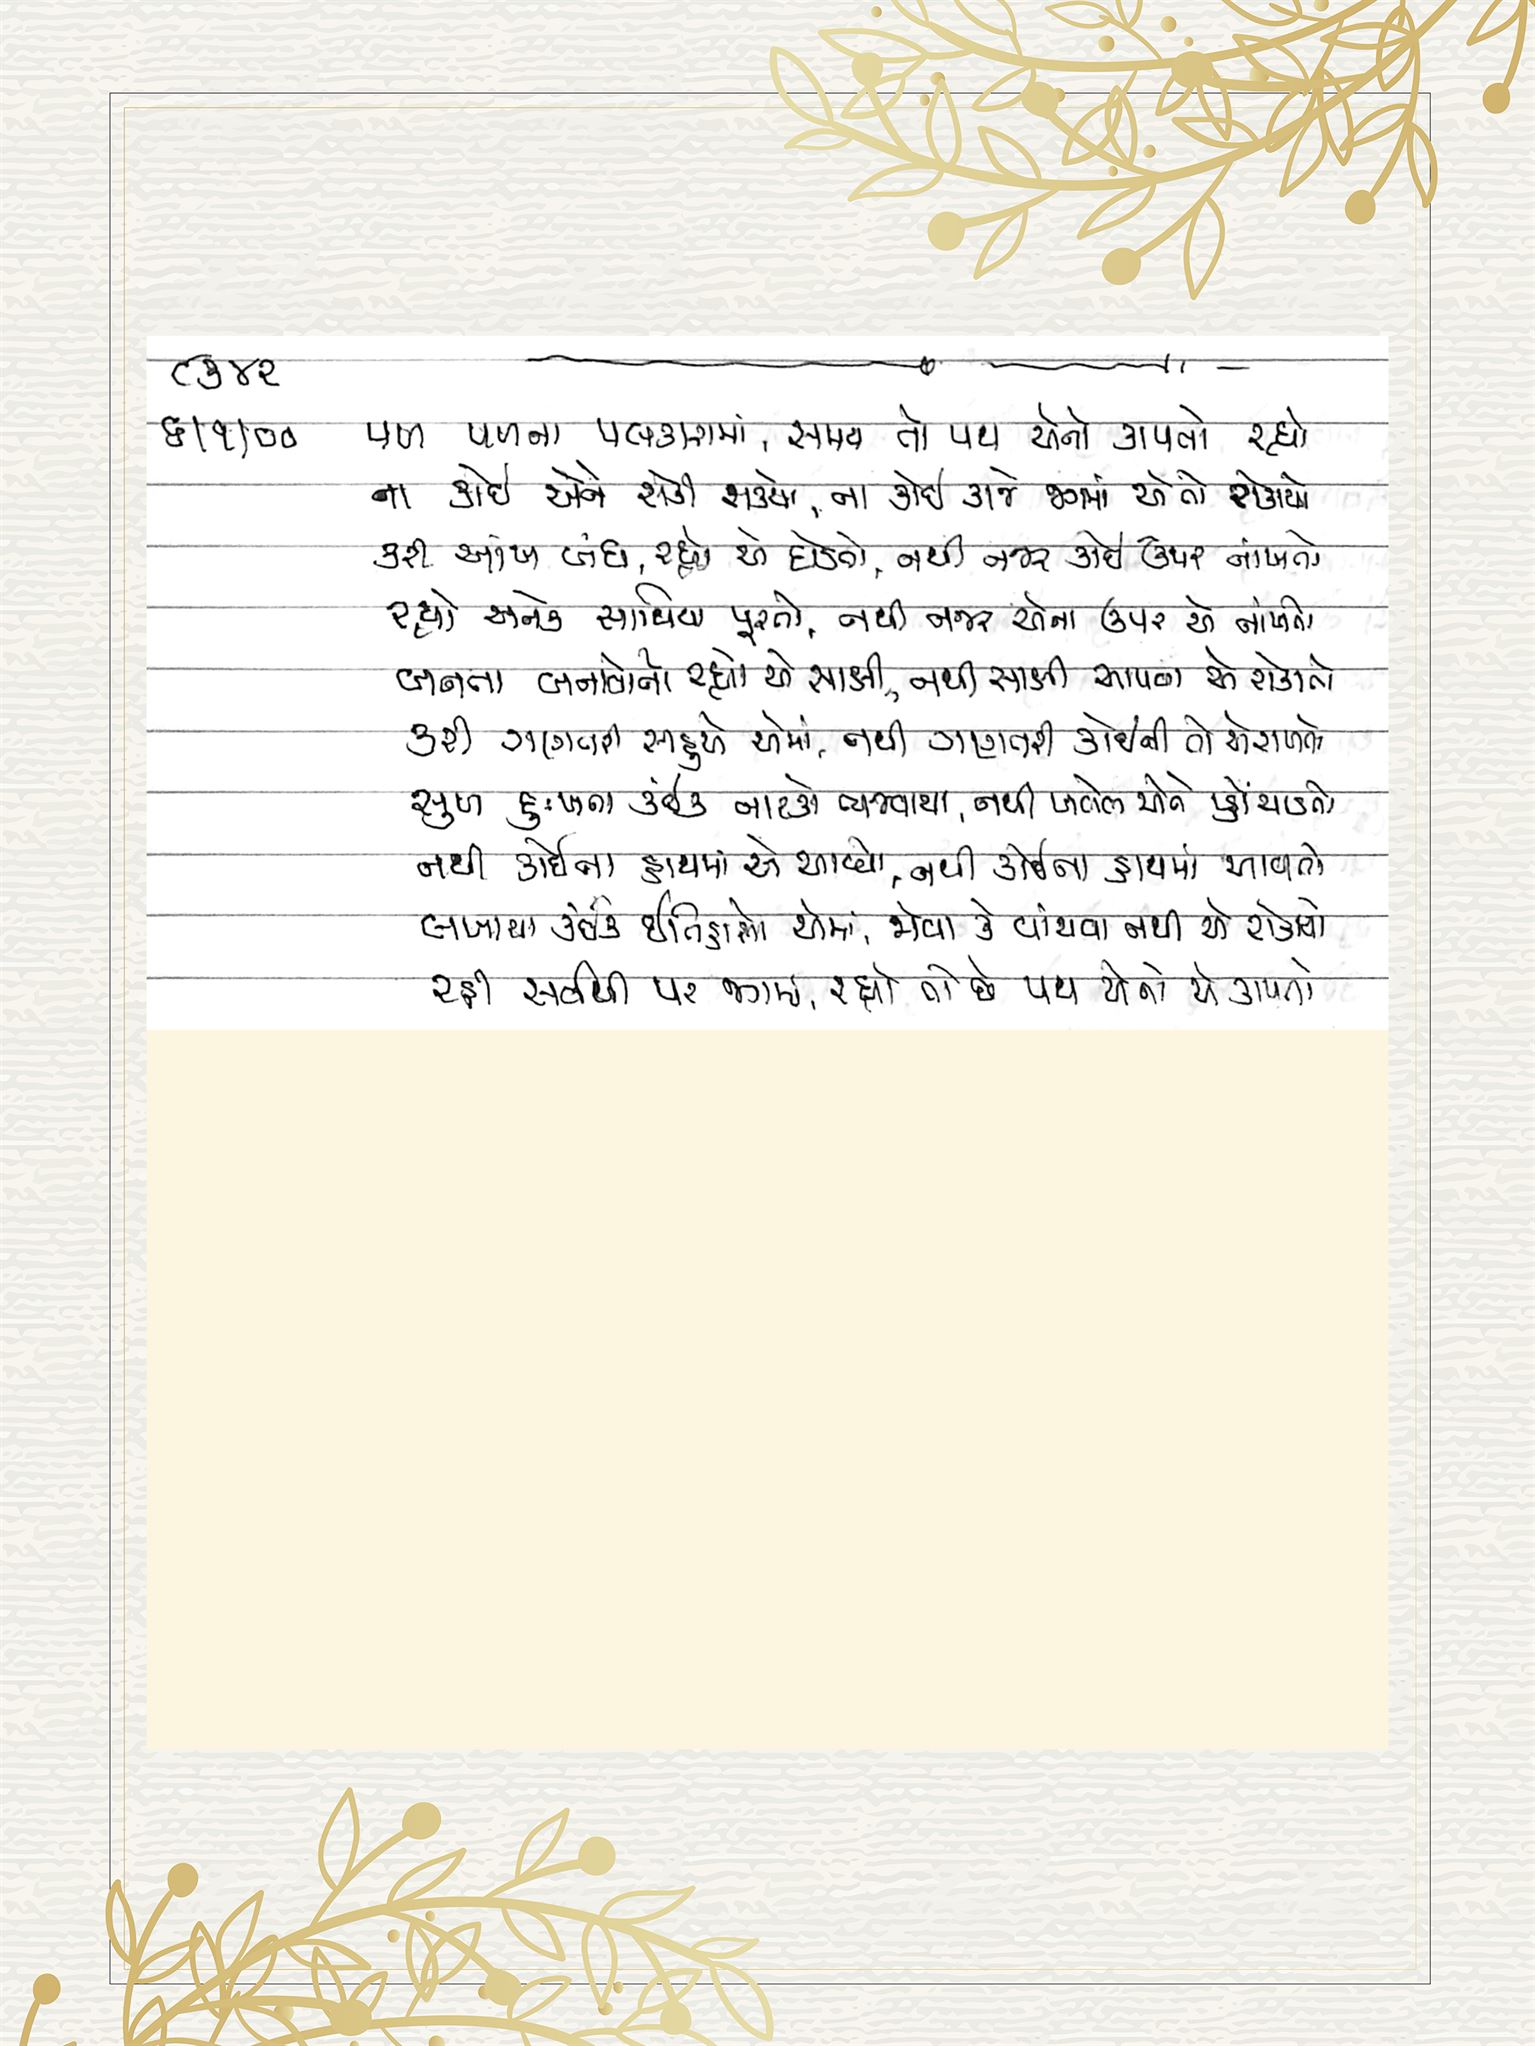 ૮૩૪૨
૬/૧/૦૦ પળ પળના પલકારામાં, સમય તો પથ એનો કાપતો રહ્યો
ના કોઈ એને રોકી શક્યો, ના કોઈ કાજે જગમાં એ તો રોકાયો
કરી આંખ બંધ, રહ્યો એ દોડતો, નથી નજર કોઈ ઉપર નાંખતો
રહ્યો અનેક સાથિયા પૂરતો, નથી નજર એના ઉપર એ નાંખતો
બનતા બનાવોનો રહ્યો એ સાક્ષી, નથી સાક્ષી આપવા એ રોકાતો
કરી ગણતરી સહુએ એમાં, નથી ગણતરી કોઈની તો એ રાખતો
સુખ દુઃખના કંઈક નાટકો ભજવાયા, નથી ખલેલ એને પહોંચાડતો
નથી કોઈના હાથમાં એ આવ્યો, નથી કોઈના હાથમાં આવતો
લખાયા કંઈક ઈતિહાસો એમાં, જોવા કે વાંચવા નથી એ રોકાયો
રહી સર્વથી પર જગમાં, રહ્યો તો છે પથ એનો એ કાપતો